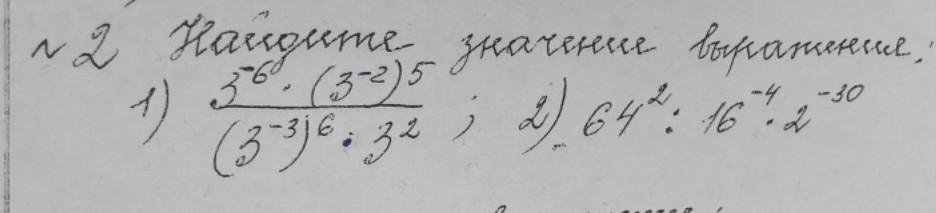 № 2 Найдите значение выражения:
1) 3⁻⁶ · (3⁻²)⁵ / (3⁻³)⁶ · 3² ; 2) 64² : 16⁻⁴ · 2⁻³⁰